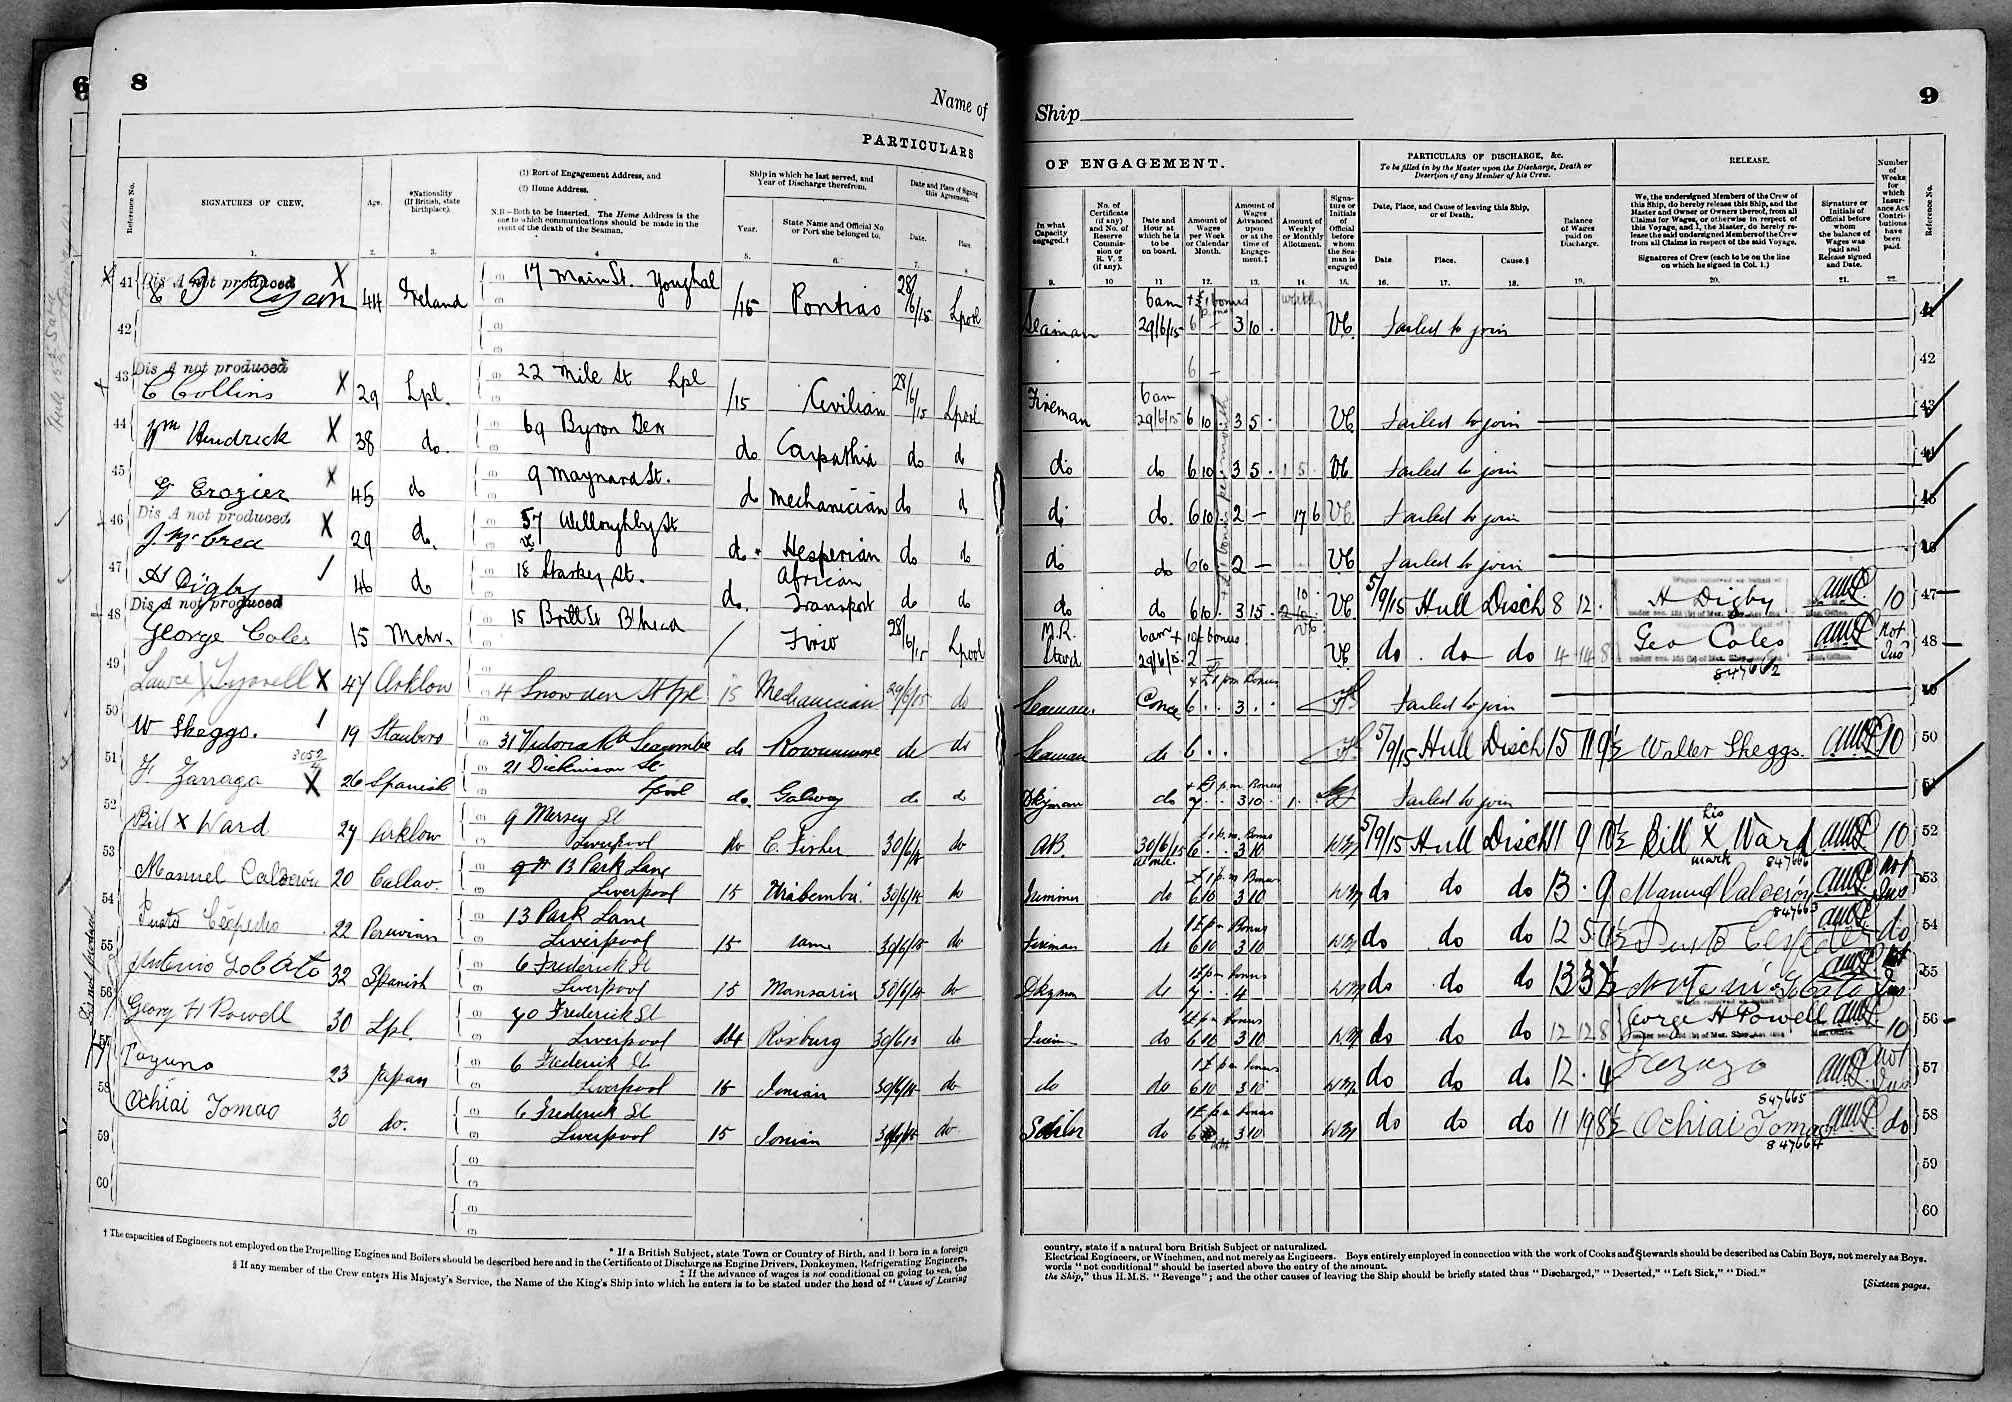 6
8
Name of
PARTICULARS
Reference No.
SIGNATURES OF CREW.
Age.
*Nationality (If British, state birthplace).
(1) Port of Engagement Address, and
(2) Home Address.
N.B.—Both to be inserted. The Home Address is the one to which communications should be made in the event of the death of the Seaman.
Ship in which he last served, and Year of Discharge therefrom.
Year.
State Name and Official No. or Port she belonged to.
Date and Place of Signing this Agreement.
Date.
Place.
1. 2. 3. 4 5. 6. 7. 8
41 Dis A not produced X
Ryan 44 Ireland 17 Main St. Youghal /15 Pontiac 28/6/15 Lpool
42
43 Dis A not produced
C Collins X 29 Lpl. 22 Mile St Lpl /15 Civilian 28/6/15 Lpool
44 Wm Kendrick X 38 do. 69 Byron Terr do Carpathia do do
45 G Crozier X 45 do 9 Maynard St. do Mechanician do do
46 Dis A not produced
J. McCrea X 29 do. 57 Willoughby St do Hesperian do do
47 H Digby 46 do 18 Starkey St. do. African Transport do do
48 Dis A not produced
George Coles 15 Mchr. 15 Britt St B'head / First 28/6/15 Lpool
49 X 47 Arklow 4 Snowden St Lpl 15 Mechanician 29/6/15 do
50 W Skeggs. 19 31 Victoria Rd Seacombe do Rowanmore do do
51 F. Zarraga X 26 Spanish 21 Dickinson St Lpool do. Galway do do
52 Bill X Ward 27 Arklow 9 Mersey St Liverpool do C. Fisher 30/6/15 do
53 Manuel Calderón 20 Callao. 13 Park Lane Liverpool 15 30/6/15 do
54 22 Peruvian 13 Park Lane Liverpool 15 same 30/6/15 do
55 Antonio Lobato 32 Spanish 6 Frederick St Liverpool 15 30/6/15 do
56 Georg H Powell 30 Lpl. 70 Frederick St Liverpool Roxburg 30/6/15 do
57 23 Japan 6 Frederick St Liverpool 15 Ionian 30/6/15 do
58 Ochiai Tomao 30 do. 6 Frederick St Liverpool 15 Ionian 30/6/15 do
59
60
† The capacities of Engineers not employed on the Propelling Engines and Boilers should be described here and in the Certificate of Discharge as Engine Drivers, Donkeymen, Refrigerating Engineers,
* If a British Subject, state Town or Country of Birth, and if born in a foreign
‡ If the advance of wages is not conditional on going to sea, the
§ If any member of the Crew enters His Majesty's Service, the Name of the King's Ship into which he enters is to be stated under the head of "Cause of Leaving
9
Ship
OF ENGAGEMENT.
PARTICULARS OF DISCHARGE, &c.
To be filled in by the Master upon the Discharge, Death or Desertion of any Member of his Crew.
RELEASE.
In what Capacity engaged.†
No. of Certificate (if any) and No. of Reserve Commission or R.V.2 (if any).
Date and Hour at which he is to be on board.
Amount of Wages per Week or Calendar Month.
Amount of Wages Advanced upon or at the time of Engagement.‡
Amount of Weekly or Monthly Allotment.
Signature or Initials of Official before whom the Seaman is engaged
Date, Place, and Cause of leaving this Ship, or of Death.
Date. Place. Cause.§
Balance of Wages paid on Discharge.
We, the undersigned Members of the Crew of this Ship, do hereby release this Ship, and the Master and Owner or Owners thereof, from all Claims for Wages, or otherwise in respect of this Voyage, and I, the Master, do hereby release the said undersigned Members of the Crew from all Claims in respect of the said Voyage.
Signatures of Crew (each to be on the line on which he signed in Col. 1.)
Signature or Initials of Official before whom the balance of Wages was paid and Release signed and Date.
Number of Weeks for which Insurance Act Contributions have been paid.
Reference No.
9. 10 11 12. 13. 14. 15. 16. 17. 18. 19. 20. 21. 22.
Seaman 6am 29/6/15 + £1 bonus 6 – 3 10 . VC Failed to join 41
42
Fireman 6am 29/6/15 6 10 . 3 5 . VC Failed to join 43
do do 6 10 . 3 5 . 1 5 . VC Failed to join 44
do do. 6 10 . 2 – 17 6 VC Failed to join 45
do do 6 10 2 – VC Failed to join 46
do do 6 10 . 3 15 . VC 5/9/15 Hull Disch 8 12 . H Digby 10 47
M.R. Stwd 6am 29/6/15 + 10/- bonus 2 – VC do . do do 4 14 8 Geo Coles Not Ins 48
847662
Seaman. @ once + £1 pm Bonus 6 . . 3 . . Failed to join 49
Seaman do 6 . . 5/9/15 Hull Disch 15 11 9½ Walter Skeggs. 10 50
Dkyman do + £1 pm Bonus 7 . . 3 10 . 1 . Failed to join 51
AB. 30/6/15 at once £1 p.m. Bonus 6 . . 3 10 5/9/15 Hull Disch 11 9 10½ Bill X Ward 10 52
his
mark 847666
do £1 p.m Bonus 6 10 3 10 do do do 13 . 9 Manuel Calderón Not Ins 53
847663
Fireman do 1£ pm Bonus 6 10 3 10 do do do 12 5 do 54
Dkyman do 1£ pm Bonus 7 . . 4 do do do 13 3 Not Ins 55
do 6 10 3 10 do do do 12 12 8 George H Powell 10 56
do do 1£ pm bonus 6 10 3 10 do do do 12 . 4 Not Ins 57
847665
Sailor do 1£ pm bonus 6 3 10 do do do 11 19 8½ Ochiai Tomao do 58
847664
59
60
country, state if a natural born British Subject or naturalized.
Electrical Engineers, or Winchmen, and not merely as Engineers. Boys entirely employed in connection with the work of Cooks and Stewards should be described as Cabin Boys, not merely as Boys.
words "not conditional" should be inserted above the entry of the amount.
the Ship," thus H.M.S. "Revenge"; and the other causes of leaving the Ship should be briefly stated thus "Discharged," "Deserted," "Left Sick," "Died."
[Sixteen pages.